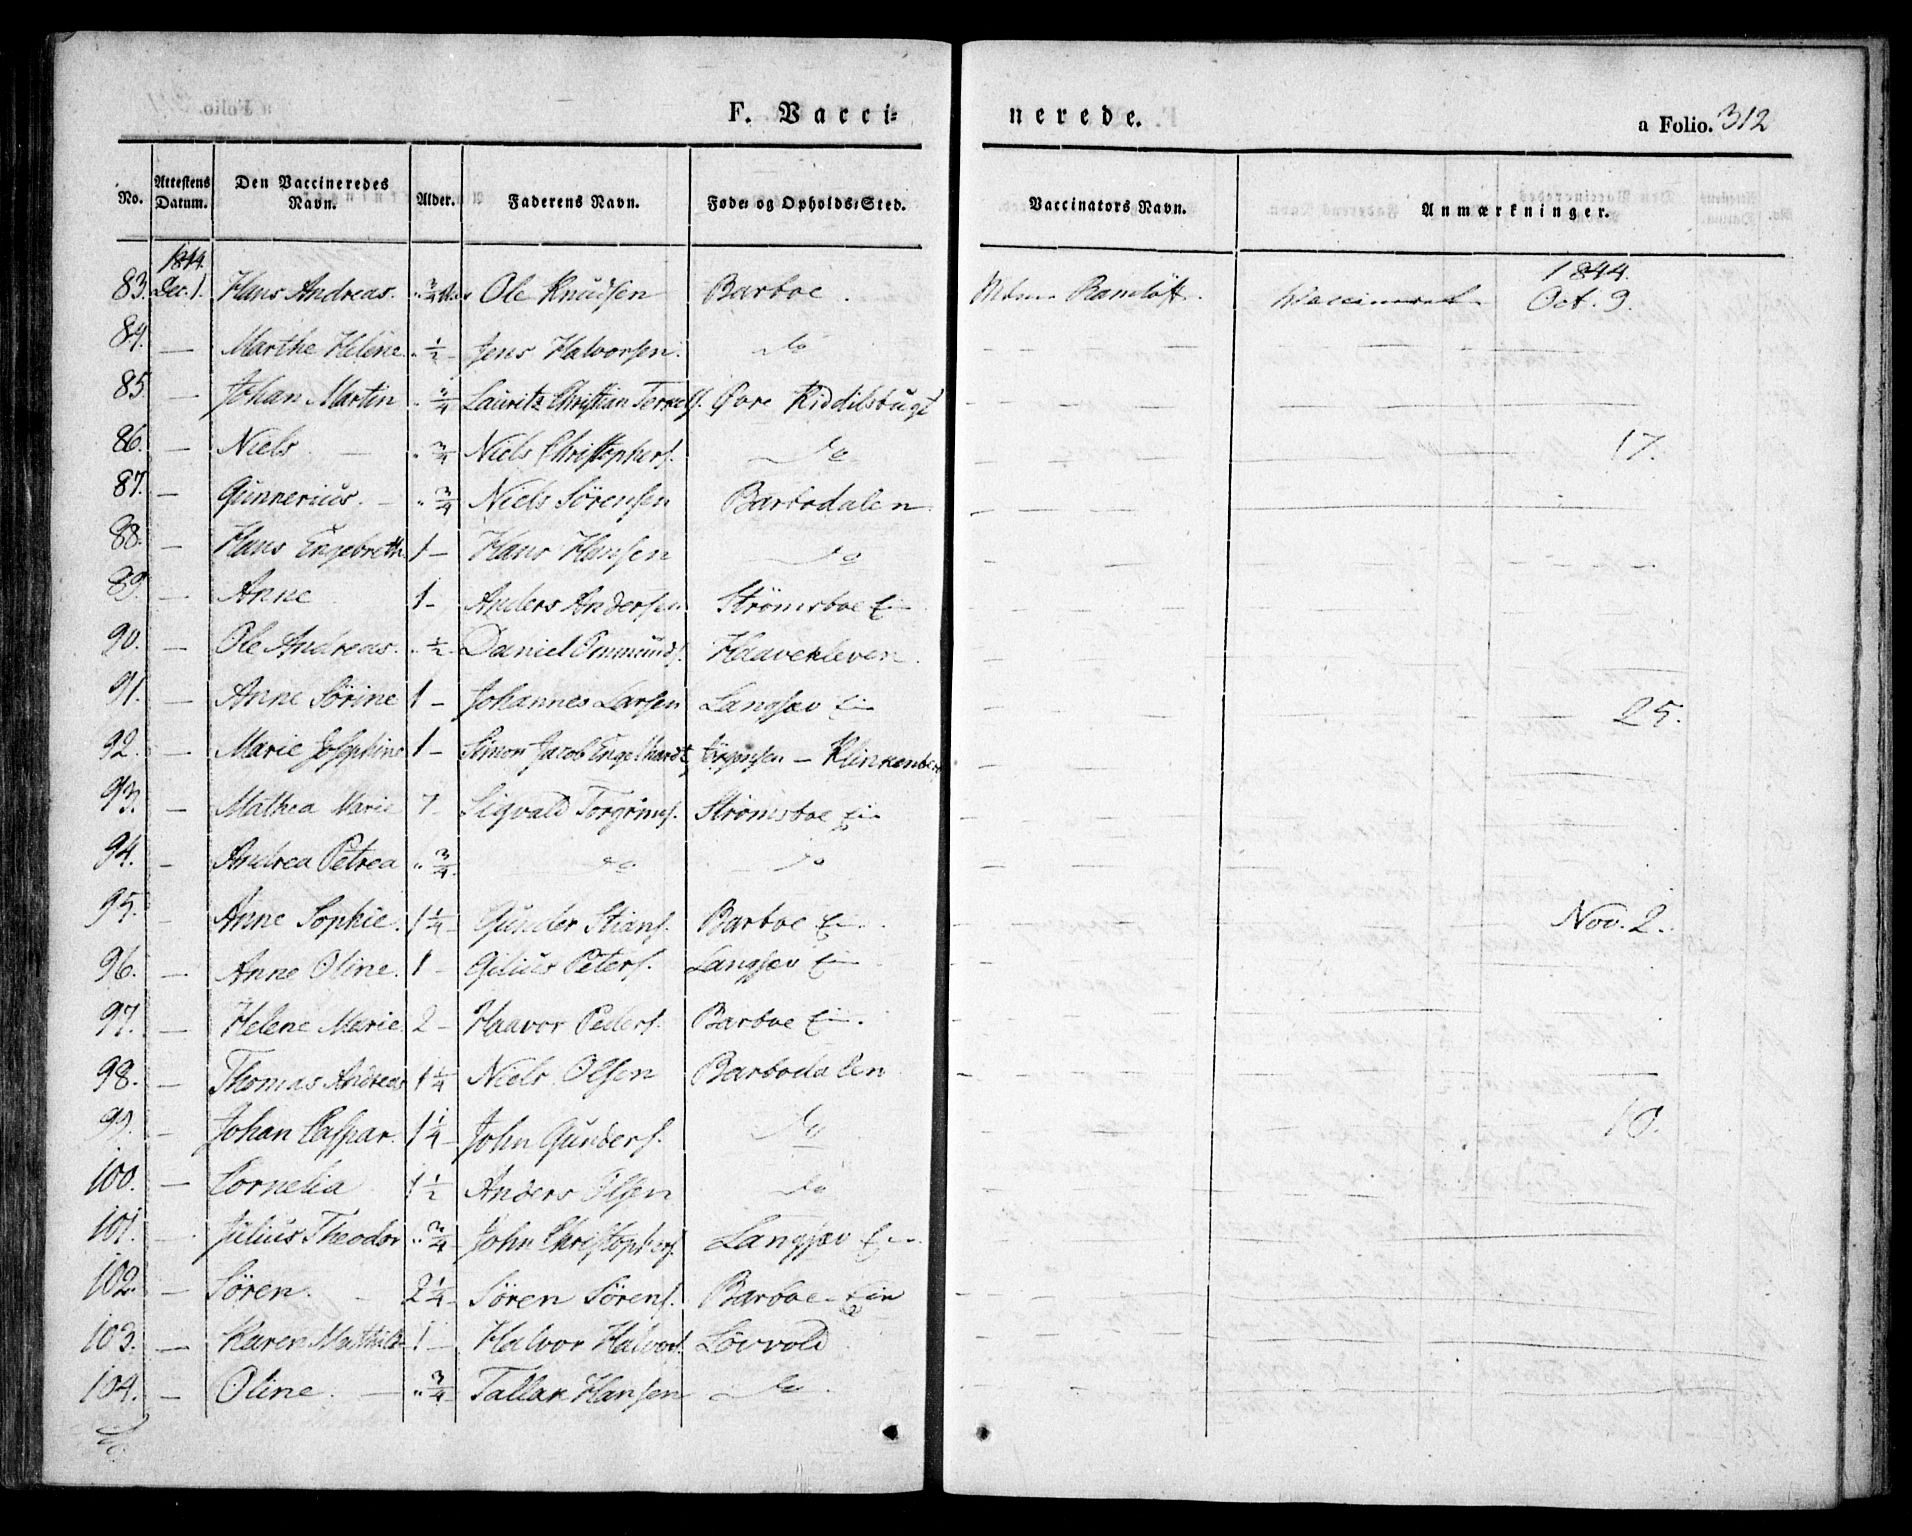 F. Vacci=
nerede.
a Folio. 312
No. Attestens Datum. Den Vaccineredes Navn. Alder. Faderens Navn. Føde- og Opholds-Sted. Vaccinators Navn. Anmærkninger.
1844. 1844.
83. Dec. 1. Hans Andreas. " 3/4 Ole Knudsen Barboe. Ramløff. Vaccineret Oct. 9.
84. — Marthe Helene " 1/2 – Jens Halvorsen. do
85. — Johan Martin " 3/4 Lauritz Christian Terkels. Øvre Kiddilsbugt
86. — Niels — " 3/4 Niels Christophers. do 17.
87. — Gunnerius. – " 3/4 Niels Sörensen Barbodalen
88. — Hans Engebreth 1 – Hans Hansen do
89. — Anne 1 – Anders Andersen Strømsboe Ei—
90. — Ole Andreas. " 1/2 – Daniel Ommunds. Haavekleven.
91. — Anne Sörine 1 – Johannes Larsen Langsæv Ei— 25.
92. — Marie Josephine 1 – Simon Jacob Engelhardt Jörgensen – Klinkenberg
93. — Mathea Marie 7 – Sigvald Torgrims. Strömsboe Ei—
94. — Andrea Petrea " 3/4 do do
95. — Anne Sophie. 1 1/4 – Gunder Stians. Barboe Ei—. Nov. 2.
96. — Anne Oline. 1 – Gilius Peters. Langsæv Ei—
97. — Helene Marie 2 – Haavor Peders. Barboe Ei—.
98. — Thomas Andreas 1 1/4 Niels Olsen Barbodalen
99. — Johan Caspar. 1 1/4 – John Gunders. do 10.
100. — Cornelia 1 1/2 Anders Olsen do
101. — Julius Theodor " 3/4 – John Christophers. Langsæv Ei—
102. — Sören. – 2 1/4 – Sören Sörens. Barboe – Ei—
103. — Karen Mathilde 1 – Halvor Halvors. Lövvold
104. — Oline. — " 3/4 – Tallak Hansen do